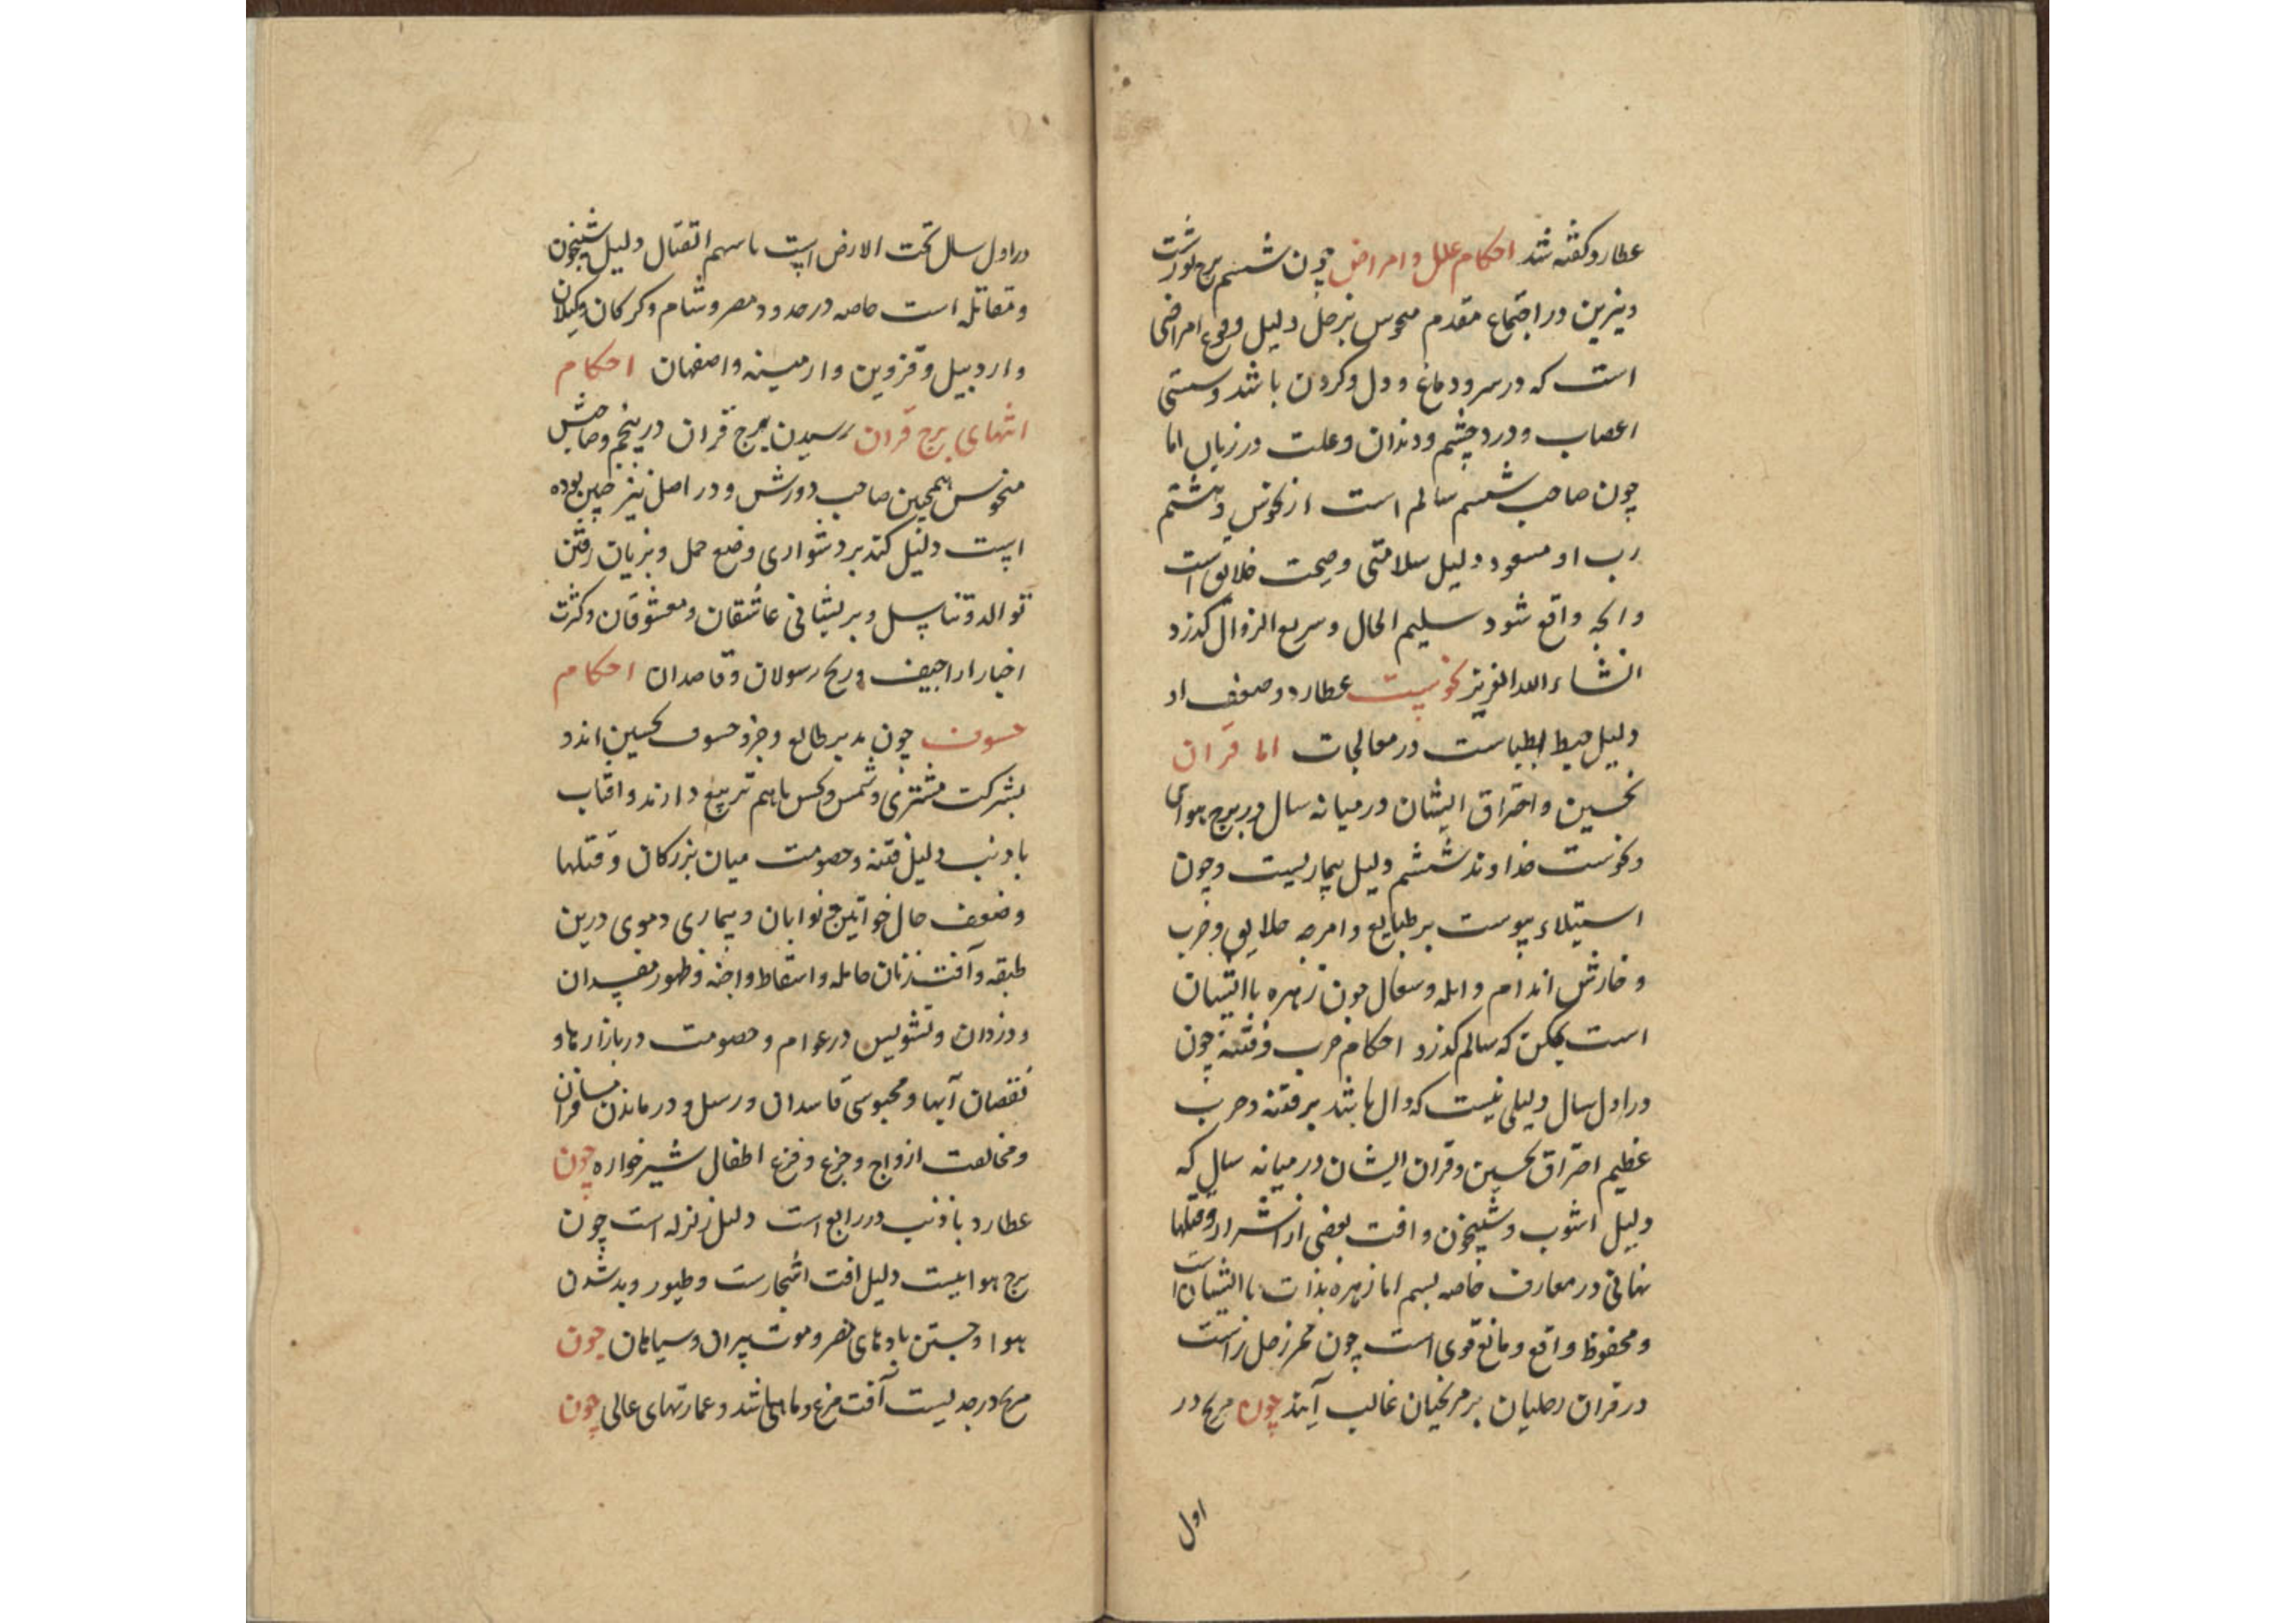 عطارد کفته شد احکام علل و امراض چون ششم برج ثورست
و نیرین در اجتماع مقدم منحوس بزحل دلیل وقوع امراضی
است که در سر و دماغ و دل و کردن باشد و سستی
اعصاب و درد چشم و دندان و علت در زبان اما
چون صاحب ششم سالم است از نحوس و هشتم
رب او مسعود دلیل سلامتی و صحت خلایق است
و انچه واقع شود سلیم الحال و سریع الزوال کذرد
انشاء الله العزیز نحوست عطارد و ضعف او
دلیل خبط اطباست در معالجات اما قران
نحسین و احتراق ایشان در میانه سال در برج هوای
و نحوست خداوند ششم دلیل بیماریست و چون
استیلاء یبوست بر طبایع و امزجه خلایق و جرب
و خارش اندام و ابله و سعال چون زهره با ایشان
است ممکن که سالم کذرد احکام حرب و فتنه چون
در اول سال دلیلی نیست که دال باشد بر فتنه و حرب
عظیم احتراق نحسین و قران ایشان در میانه سال که
دلیل اشوب و شبیخون و افت بعضی از اشرار و قتلها
نهانی در معارف خاصه بسم اما زهره بذات با ایشان است
و محفوظ واقع و مانع قوی است چون ممر زحل راست
در قران زحلیان بر مریخیان غالب آیند چون مریخ در
اول
در اول سال تحت الارض است با سهم القتال دلیل شبیخون
و مقاتله است خاصه در حدود مصر و شام و کرکان و کیلان
و اردبیل و قزوین و ارمینه و اصفهان احکام
انتهای برج قران رسیدن برج قران در پنجم و صاحبش
منحوس همچنین صاحب دورش و در اصل نیز چنین بوده
است دلیل کند بر دشواری وضع حمل و بزیان رفتن
توالد و تناسل و بریشانی عاشقان و معشوقان و کثرت
اخبار اراجیف و رنج رسولان و قاصدان احکام
خسوف چون مدبر طالع و جزو خسوف نحسین اند و
بشرکت مشتری و شمس و نحس با هم تربیع دارند و افتاب
با ذنب دلیل فتنه و خصومت میان بزرکان و قتلها
و ضعف حال خواتین و نوابان و بیماری دموی درین
طبقه و آفت زنان حامله و اسقاط و اجنه و ظهور مفسدان
و دزدان و تشویش در عوام و خصومت در بازارها و
نقصان آبها و محبوسی قاصدان و رسل و درماندن مسافران
و مخالفت ازواج و جزع و فزع اطفال شیرخواره چون
عطارد با ذنب در رابع است دلیل زلزله است چون
برج هواییست دلیل افت اشجارست و طیور و بد شدن
هوا و جستن بادهای مضر و موت پیران و سیاهان چون
مریخ در جدیست آفت مرغ و ماهی باشد و عمارتهای عالی چون